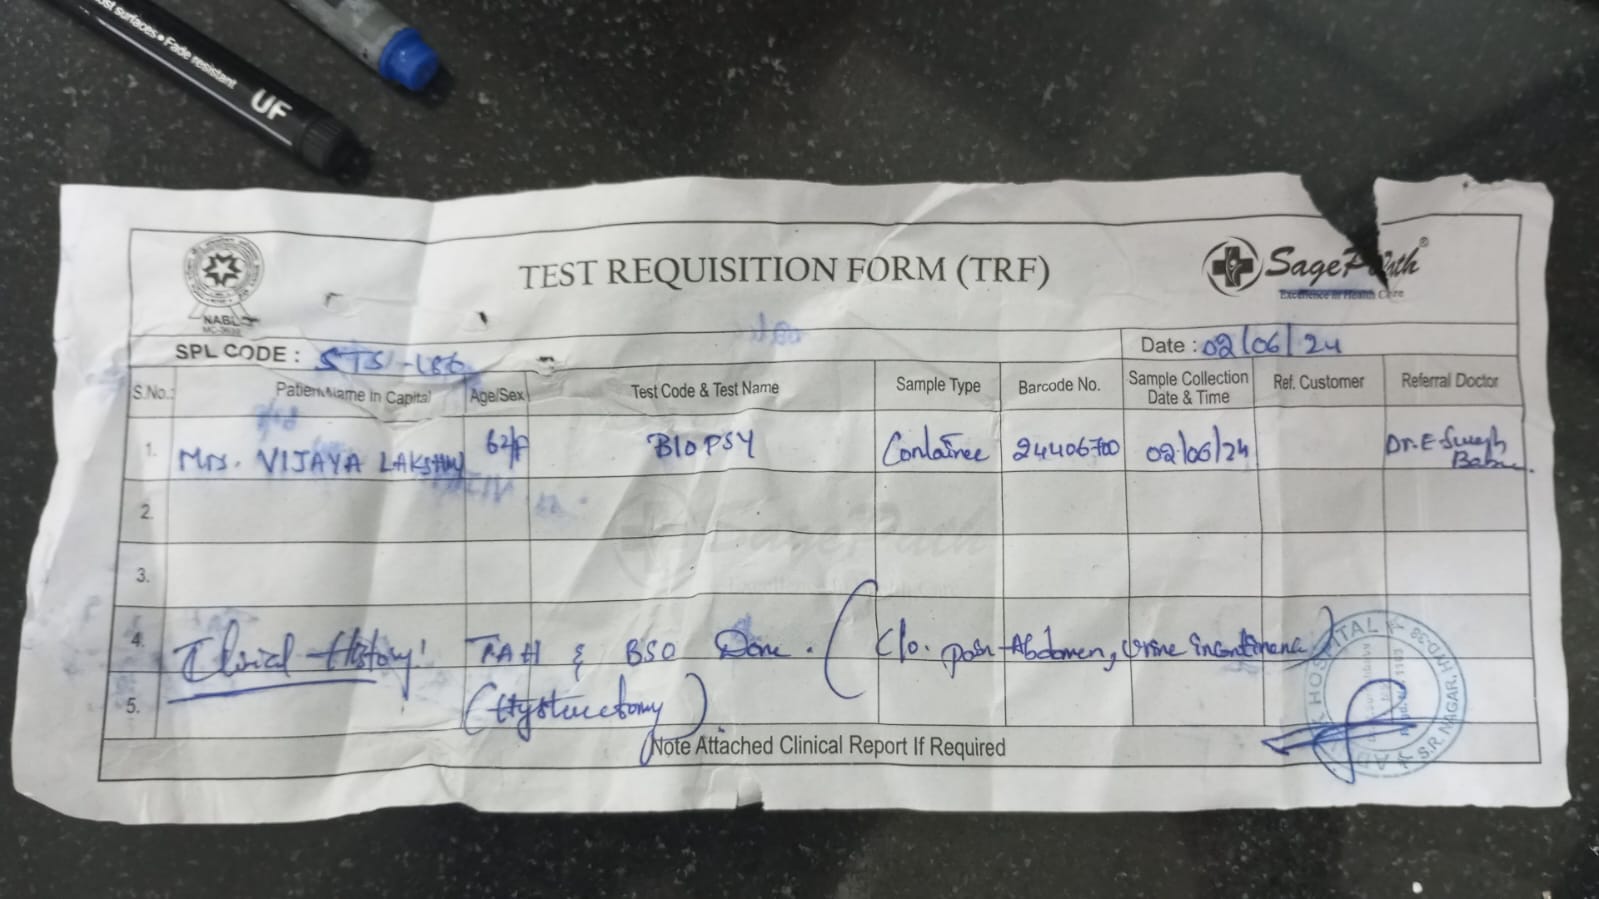 ost surfaces • Fade resistant
UF
TEST REQUISITION FORM (TRF)
SagePath®
Excellence in Health Care
NABL
SPL CODE : STS-186
Date : 02/06/24
S.No.: Patient Name In Capital Age/Sex Test Code & Test Name Sample Type Barcode No. Sample Collection Date & Time Ref. Customer Referral Doctor
1. Mrs. VIJAYA LAKSHMI 62/F BIOPSY Container 24406700 02/06/24 Dr. E. Suresh Babu.
2.
3.
4. Clinical History: TAH & BSO Done. (C/o. pain Abdomen, Urine incontinence)
5. (Hysterectomy).
Note Attached Clinical Report If Required
HOSPITAL
S.R. NAGAR, HYD-38